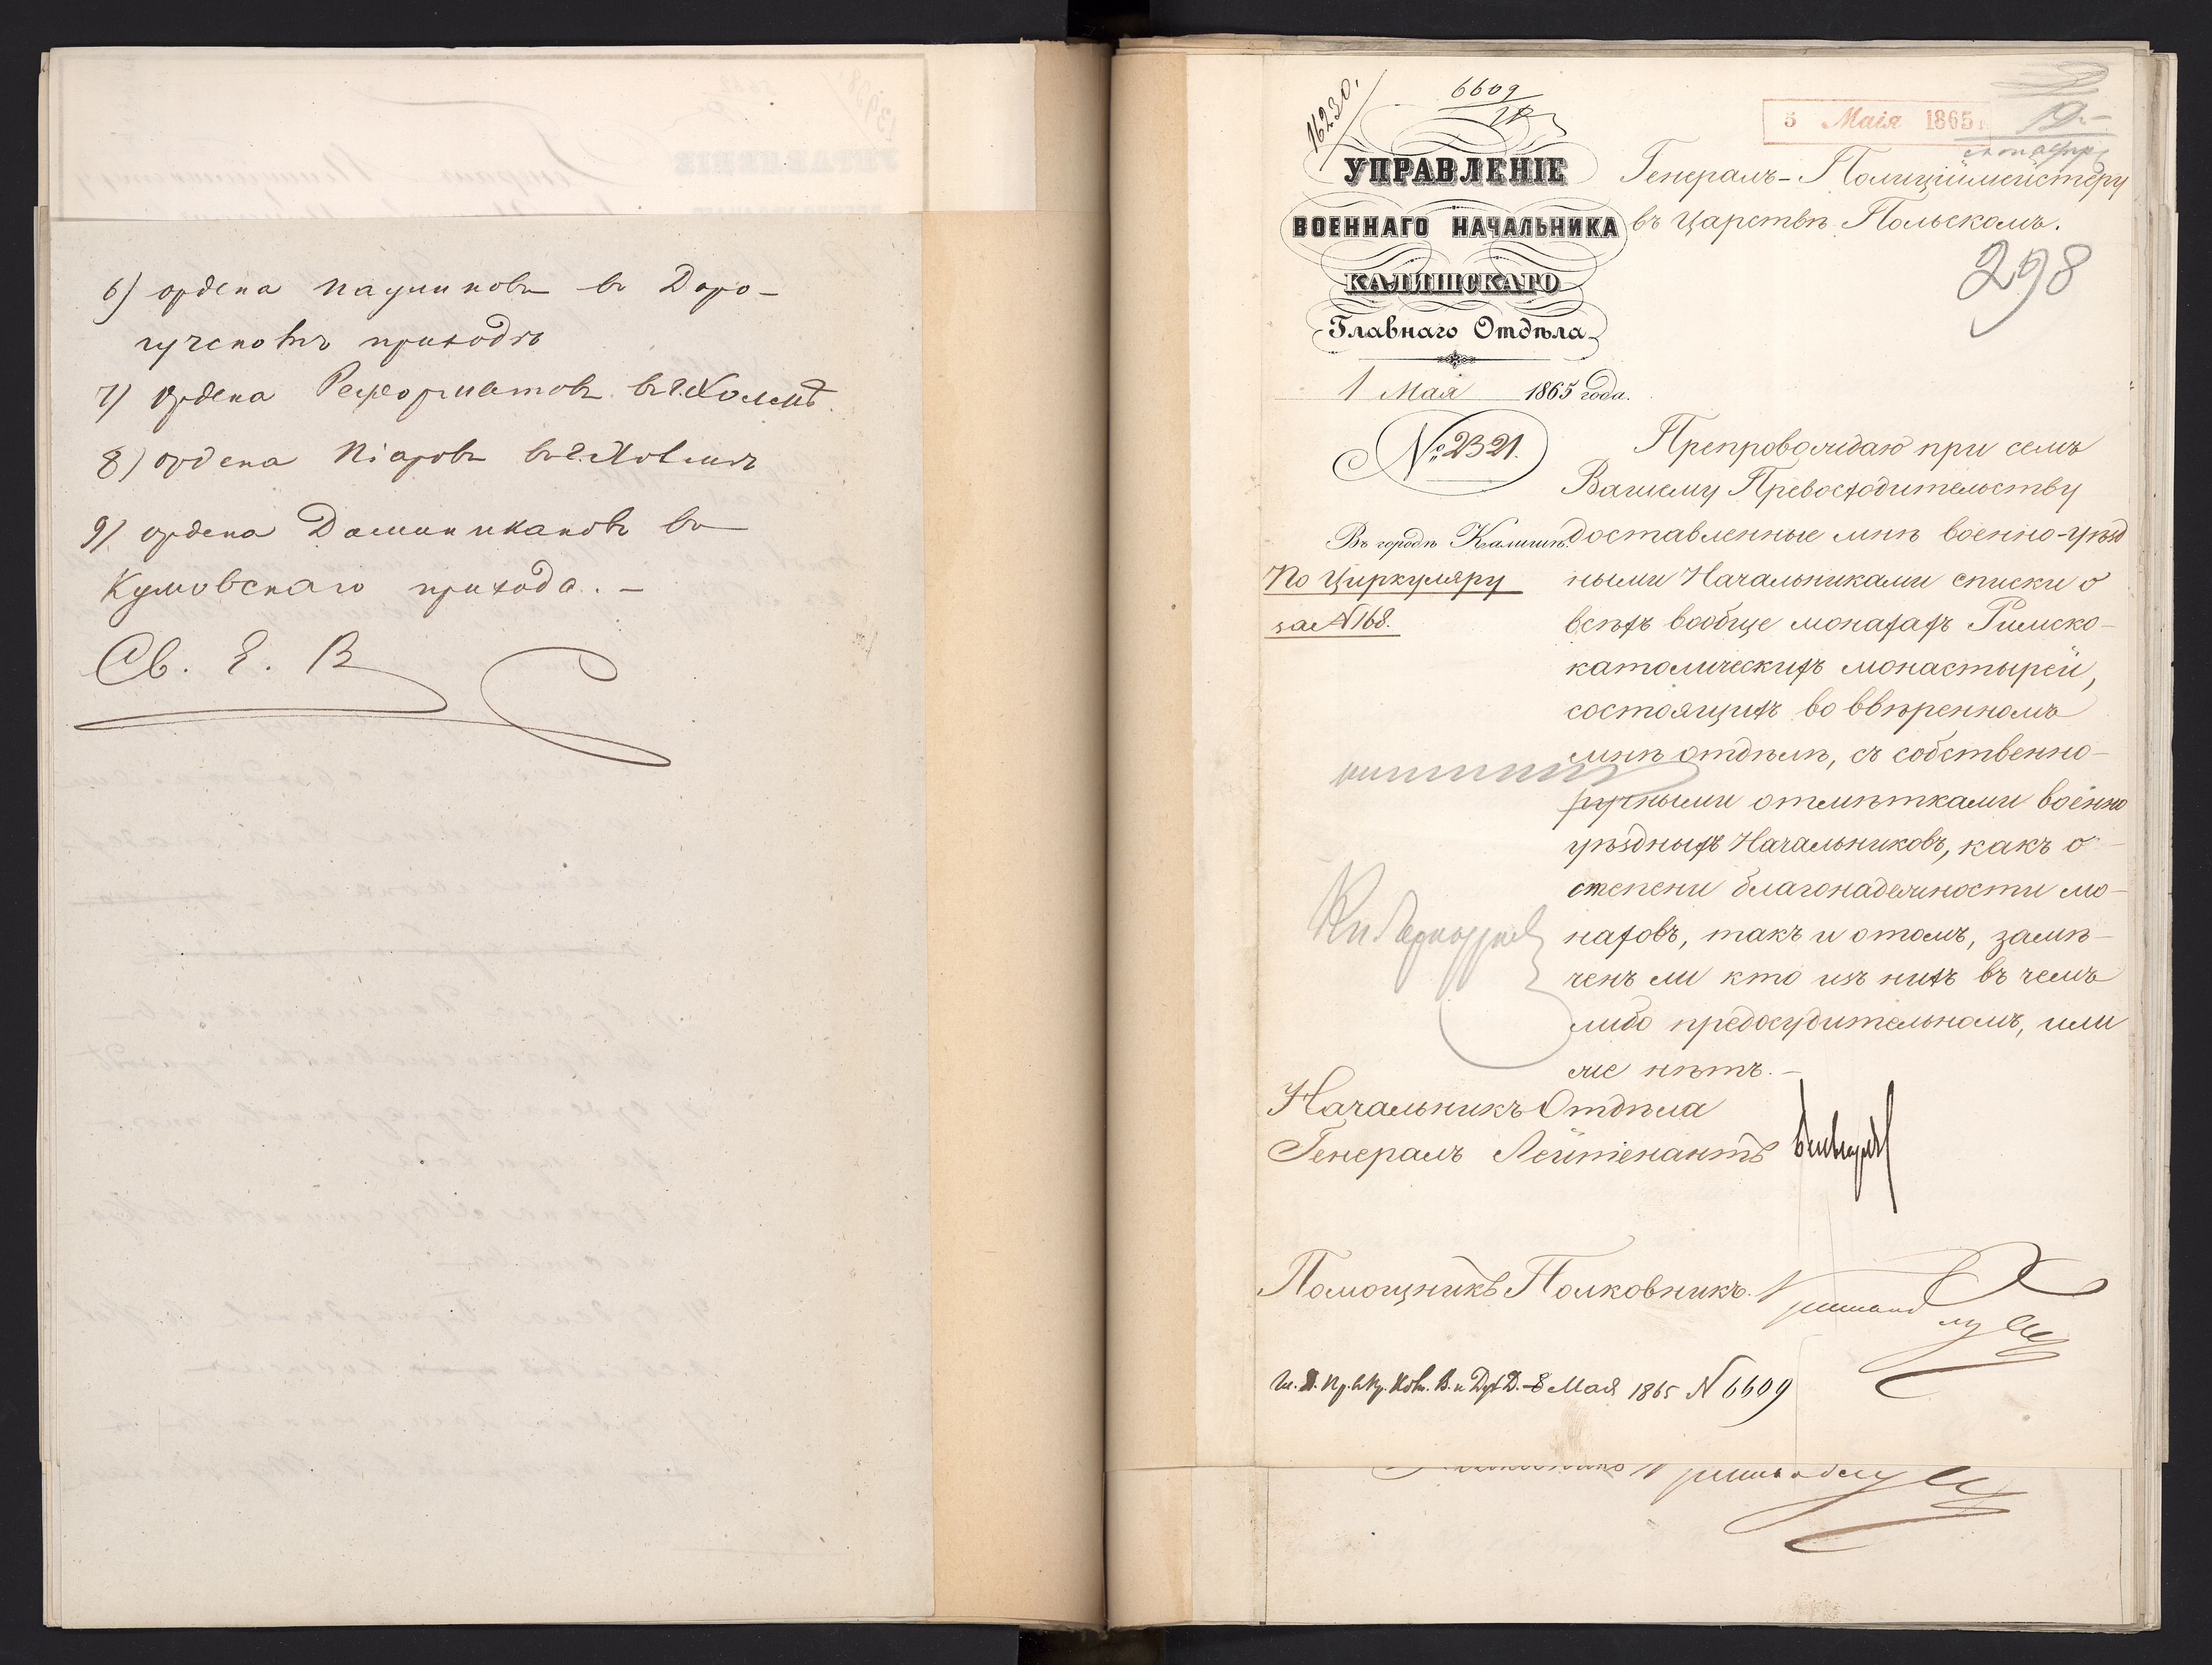 6) ордена паулиновъ въ Доро-
гучсковъ приходѣ
7) ордена Реформатовъ въ г. Холмѣ.
8) ордена Піаровъ въ г. Холмѣ
9) ордена Доминикановъ въ
Кумовскаго прихода. -
Св. Е. В
16230.
6609
5 Мая 1865 г.
19.
УПРАВЛЕНІЕ
ВОЕННАГО НАЧАЛЬНИКА
КАЛИШСКАГО
Главнаго Отдѣла
1 Мая 1865 года.
№ 2321.
Въ городѣ Калишѣ.
По Циркуляру
за № 168.
Генералъ-Полиціймейстеру
въ Царствѣ Польскомъ.
298
Препровождаю при семъ
Вашему Превосходительству
доставленные мнѣ военно-уѣзд
ными Начальниками списки о
всѣхъ вообще монахахъ Римско-
католическихъ монастырей,
состоящихъ во ввѣренномъ
мнѣ отдѣлѣ, съ собственно-
ручными отмѣтками военно
уѣздныхъ Начальниковъ, какъ о
степени благонадежности мо-
наховъ, такъ и о томъ, замѣ-
ченъ ли кто изъ нихъ въ чемъ
либо предосудительномъ, или
же нѣтъ. -
Начальникъ Отдѣла
Генералъ Лейтенантъ
Помощникъ Полковникъ
8 Мая 1865 № 6609